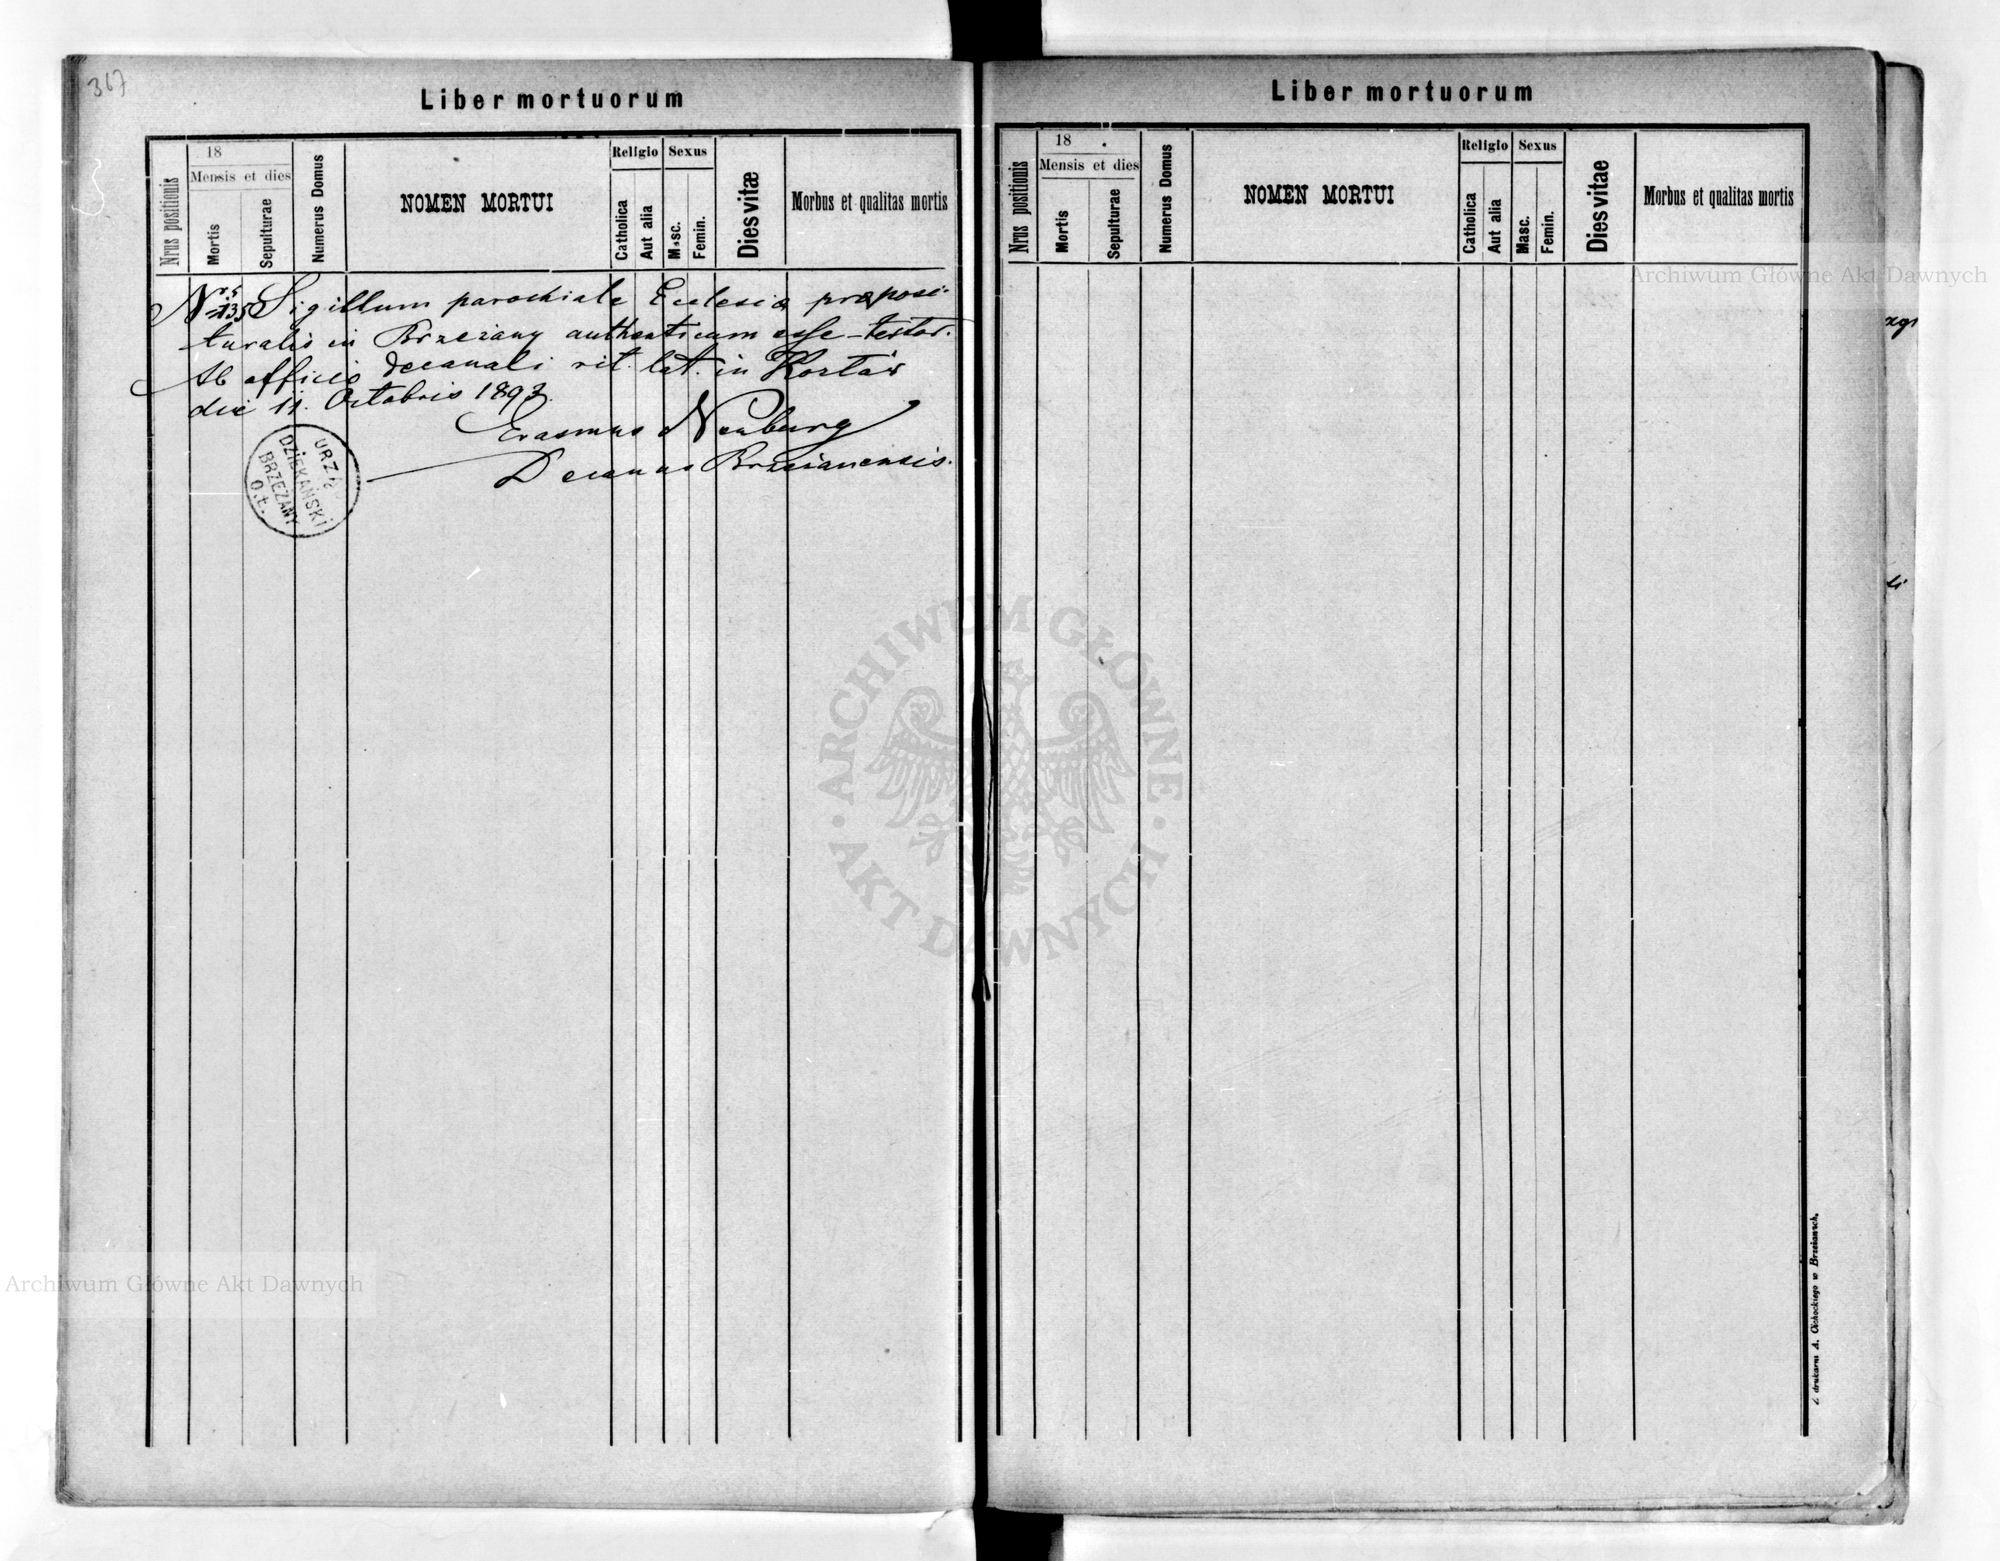 367
Liber mortuorum
Nrus positionis
18
Mensis et dies
Mortis
Sepulturae
Numerus Domus
NOMEN MORTUI
Religio
Catholica
Aut alia
Sexus
Masc.
Femin.
Dies vitæ
Morbus et qualitas mortis
Sigillum parochiale Ecclesiæ præposi-
turalis in Brzeżany authenticum esse testor.
Ab officio decanali rit. lat. in
die 11. Octobris 1893.
Erasmus Neuburg
Decanus Brzeżanensis.
URZĄD
DZIEKAŃSKI
BRZEŻANY
o.ł.
Liber mortuorum
Nrus positionis
18
Mensis et dies
Mortis
Sepulturae
Numerus Domus
NOMEN MORTUI
Religio
Catholica
Aut alia
Sexus
Masc.
Femin.
Dies vitae
Morbus et qualitas mortis
Z drukarni A. Cichockiego w Brzeżanach.
Archiwum Główne Akt Dawnych
ARCHIWUM GŁÓWNE
AKT DAWNYCH
Archiwum Główne Akt Dawnych